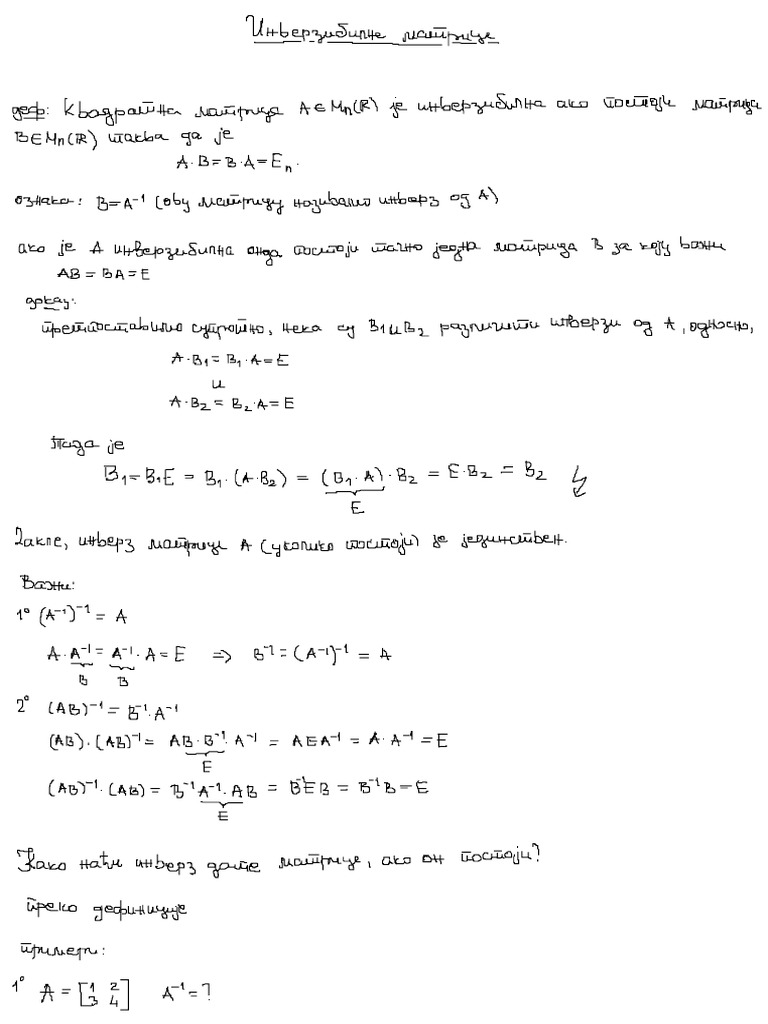 Инверзибилне матрице
деф: Квадратна матрица A∈Mn(ℝ) је инверзибилна ако постоји матрица
B∈Mn(ℝ) таква да је
A·B=B·A=Eₙ.
ознака: B=A⁻¹ (ову матрицу називамо инверз од A)
ако је A инверзибилна онда постоји тачно једна матрица B за коју важи
AB=BA=E
доказ:
претпоставимо супротно, нека су B₁ и B₂ различити инверзи од A, односно,
A·B₁=B₁·A=E
и
A·B₂=B₂·A=E
Тада је
B₁=B₁E=B₁·(A·B₂)=(B₁·A)·B₂=E·B₂=B₂ ↯
E
Дакле, инверз матрице A (уколико постоји) је јединствен.
Важи:
1° (A⁻¹)⁻¹=A
A·A⁻¹=A⁻¹·A=E ⇒ B⁻¹=(A⁻¹)⁻¹=A
B B
2° (AB)⁻¹=B⁻¹·A⁻¹
(AB)·(AB)⁻¹=AB·B⁻¹·A⁻¹=AEA⁻¹=A·A⁻¹=E
E
(AB)⁻¹·(AB)=B⁻¹A⁻¹·AB=B⁻¹EB=B⁻¹B=E
E
Како наћи инверз дате матрице, ако он постоји?
преко дефиниције
пример:
1° A=[1 2
3 4] A⁻¹=?